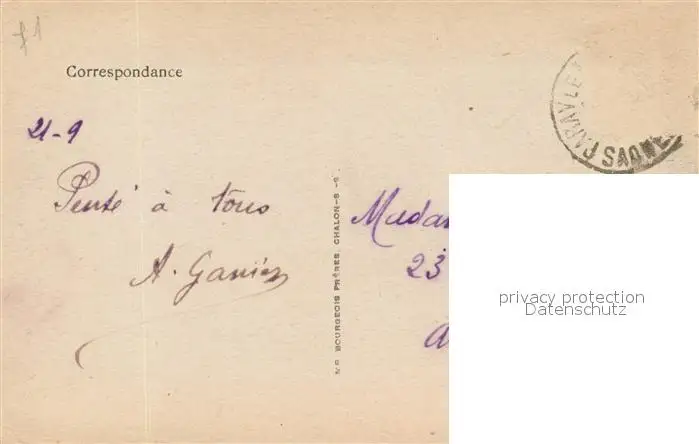 £1
Correspondance
21-9
Pensé à tous
A.
MB BOURGEOIS FRÈRES CHALON-S-S
Madam
23
PARAY LE
SAONE
privacy protection
Datenschutz